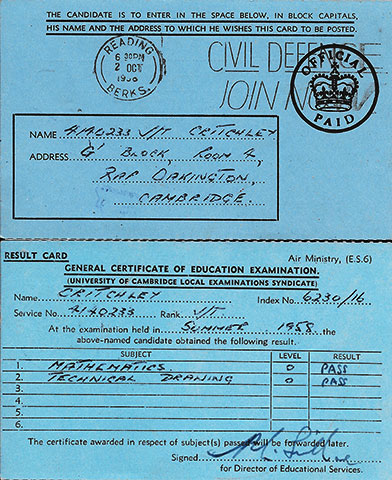 THE CANDIDATE IS TO ENTER IN THE SPACE BELOW, IN BLOCK CAPITALS,
HIS NAME AND THE ADDRESS TO WHICH HE WISHES THIS CARD TO BE POSTED.
READING
6 30PM
2 OCT
1958
BERKS.
CIVIL DEFENCE
JOIN NOW
OFFICIAL
PAID
NAME 4140233 J/T CRITCHLEY
ADDRESS 'G' BLOCK, ROOM 4,
RAF OAKINGTON,
CAMBRIDGE.
RESULT CARD
Air Ministry, (E.S.6)
GENERAL CERTIFICATE OF EDUCATION EXAMINATION.
(UNIVERSITY OF CAMBRIDGE LOCAL EXAMINATIONS SYNDICATE)
Name CRITCHLEY Index No. 6230/16
Service No. 4140233 Rank J/T
At the examination held in SUMMER 1958 the
above-named candidate obtained the following result.
SUBJECT LEVEL RESULT
1. MATHEMATICS O PASS
2. TECHNICAL DRAWING O PASS
3.
4.
5.
6.
The certificate awarded in respect of subject(s) passed will be forwarded later.
Signed
for Director of Educational Services.